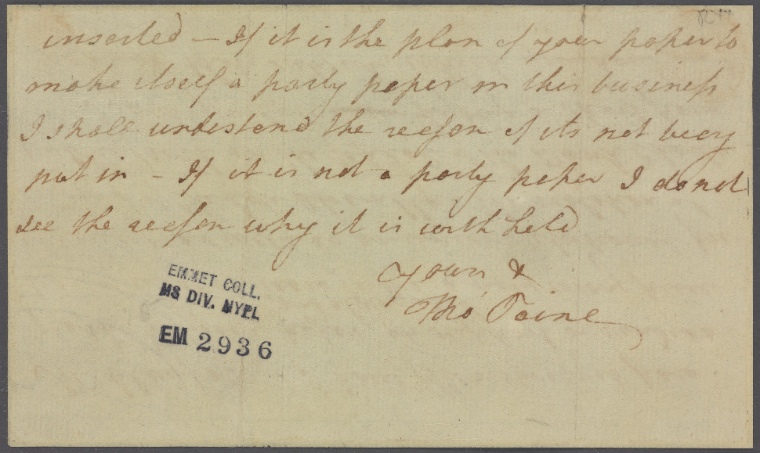 inserted — If it is the plan of your paper to
make itself a party paper in this business
I shall understand the reason of its not being
put in — If it is not a party paper I do not
see the reason why it is withheld
yours &
Tho.s Paine
EMMET COLL.
MS DIV. NYPL
EM 2936